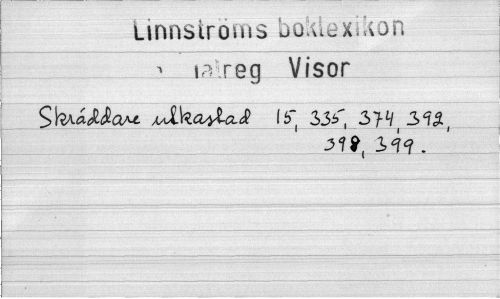 Linnströms boklexikon
Visor
Skräddare utkastad 15, 335, 374, 392,
398, 399.